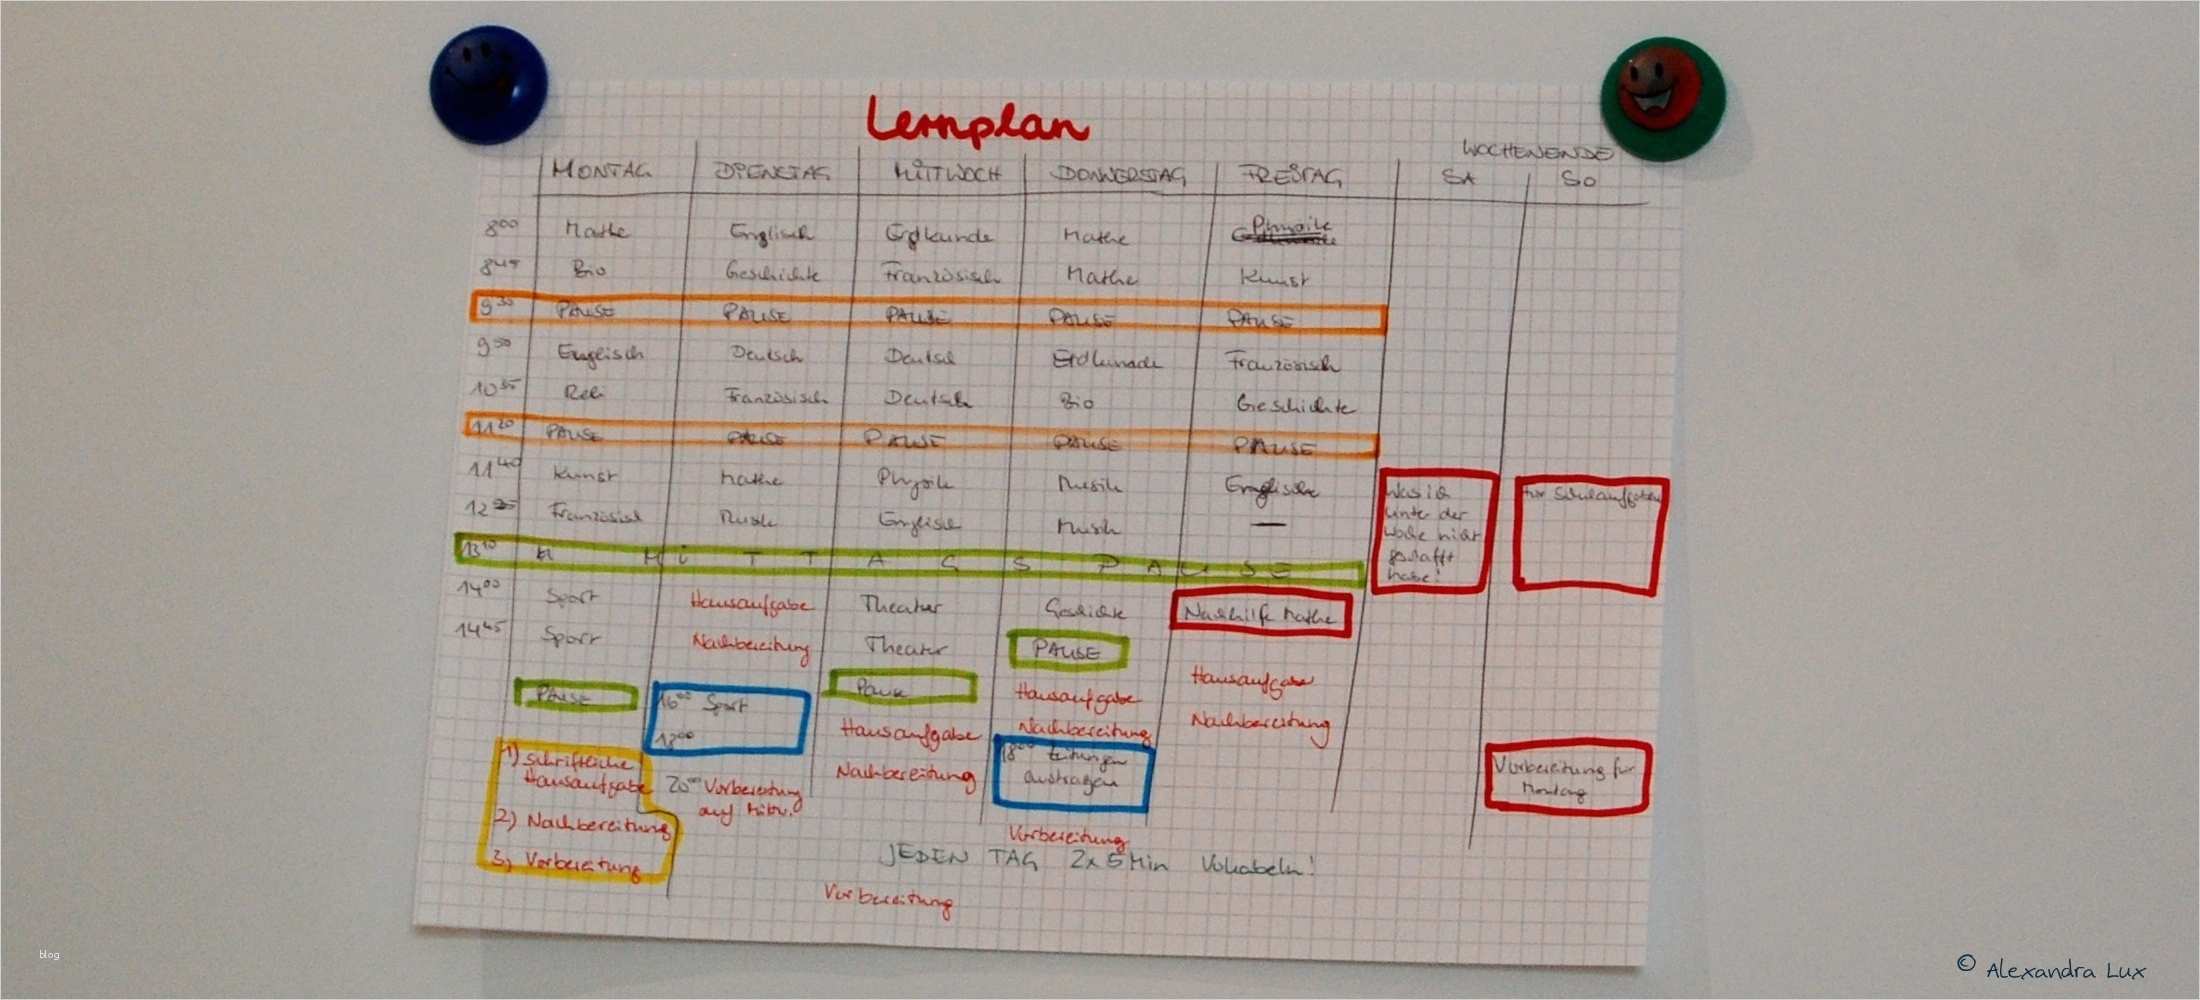 Lernplan
WOCHENENDE
MONTAG DIENSTAG MITTWOCH DONNERSTAG FREITAG SA SO
8⁰⁰ Mathe Englisch Erdkunde Mathe Physik
8⁴⁵ Bio Geschichte Französisch Mathe Kunst
9³⁰ PAUSE PAUSE PAUSE PAUSE PAUSE
9⁵⁰ Englisch Deutsch Deutsch Erdkunde Französisch
10³⁵ Reli Französisch Deutsch Bio Geschichte
11²⁰ PAUSE PAUSE PAUSE PAUSE PAUSE
11⁴⁰ Kunst Mathe Physik Musik Englisch
12²⁵ Französisch Musik Englisch Musik —
13¹⁰ MITTAGSPAUSE
Was ich
unter der
Woche nicht
geschafft
habe!
für Schulaufgaben
14⁰⁰ Sport Hausaufgabe Theater Geschichte Nachhilfe Mathe
14⁴⁵ Sport Nachbereitung Theater PAUSE
PAUSE 16⁰⁰ Sport Pause Hausaufgabe Hausaufgabe
18⁰⁰ Hausaufgabe Nachbereitung Nachbereitung
1) schriftliche
Hausaufgabe
2) Nachbereitung
3) Vorbereitung
20⁰⁰ Vorbereitung
auf Mittw.
Nachbereitung
18⁰⁰ Zeitungen
austragen
Vorbereitung für
Montag
Vorbereitung
JEDEN TAG 2x5Min Vokabeln!
Vorbereitung
blog
© Alexandra Lux